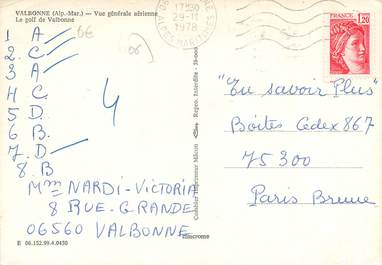 VALBONNE (Alp.-Mar.) — Vue générale aérienne
Le golf de Valbonne
1 A
6€
2. C
3 A
4 C.
5 D.
6 B.
7. D
8. B
4
(06)
Mme NARDI-VICTORIA
8 RUE-GRANDE
06560 VALBONNE
E 06.152.99.4.0450
17H30
29-11
1978
ALPES-MARITIMES
FRANCE
1,20
"En savoir Plus"
Boites Cedex 867
75300
Paris Brune
Combier Imprimeur Mâcon